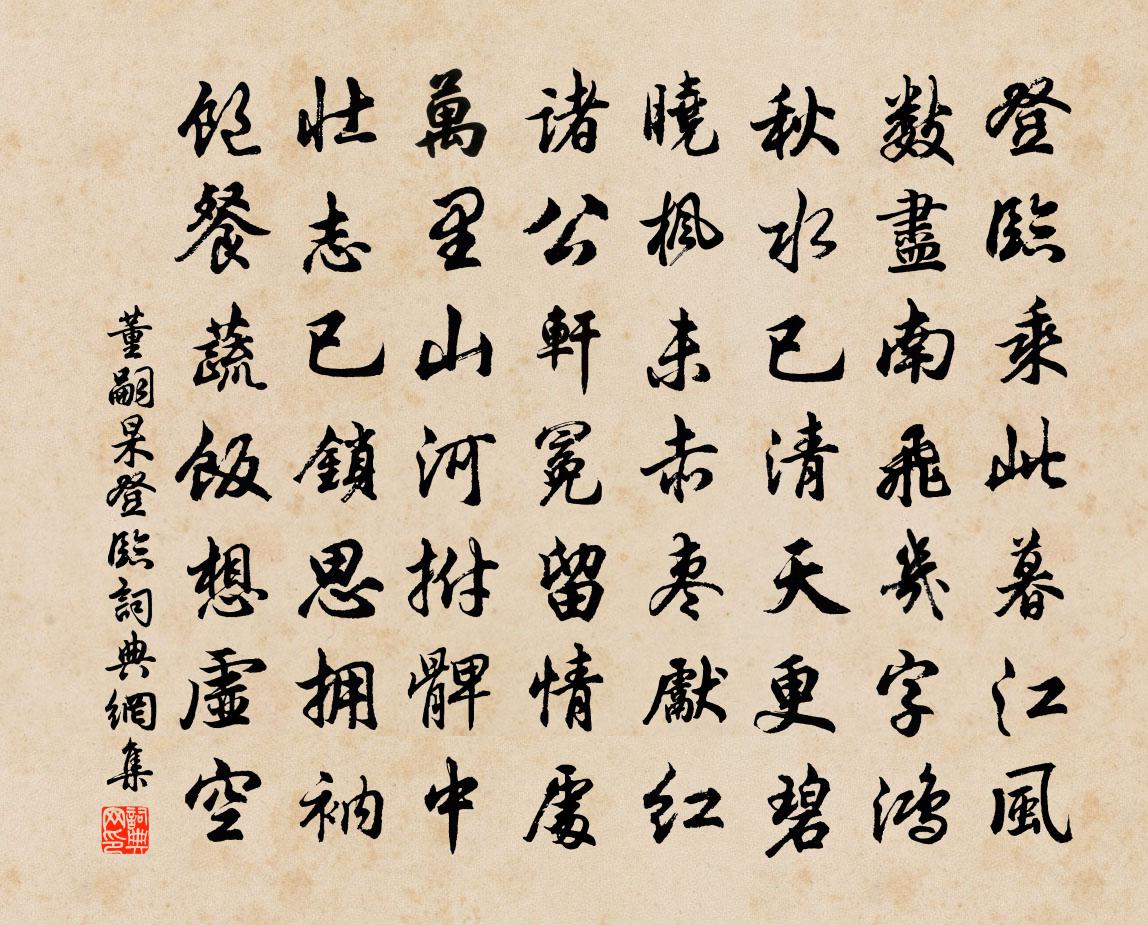 登臨乘此暮江風
數盡南飛幾字鴻
秋水已清天更碧
曉楓未赤棗獻紅
諸公軒冕留情處
萬里山河拊髀中
壯志已鎖思拥衲
飽餐蔬飯想虛空
董嗣杲登臨詞典網集
詞典
网印